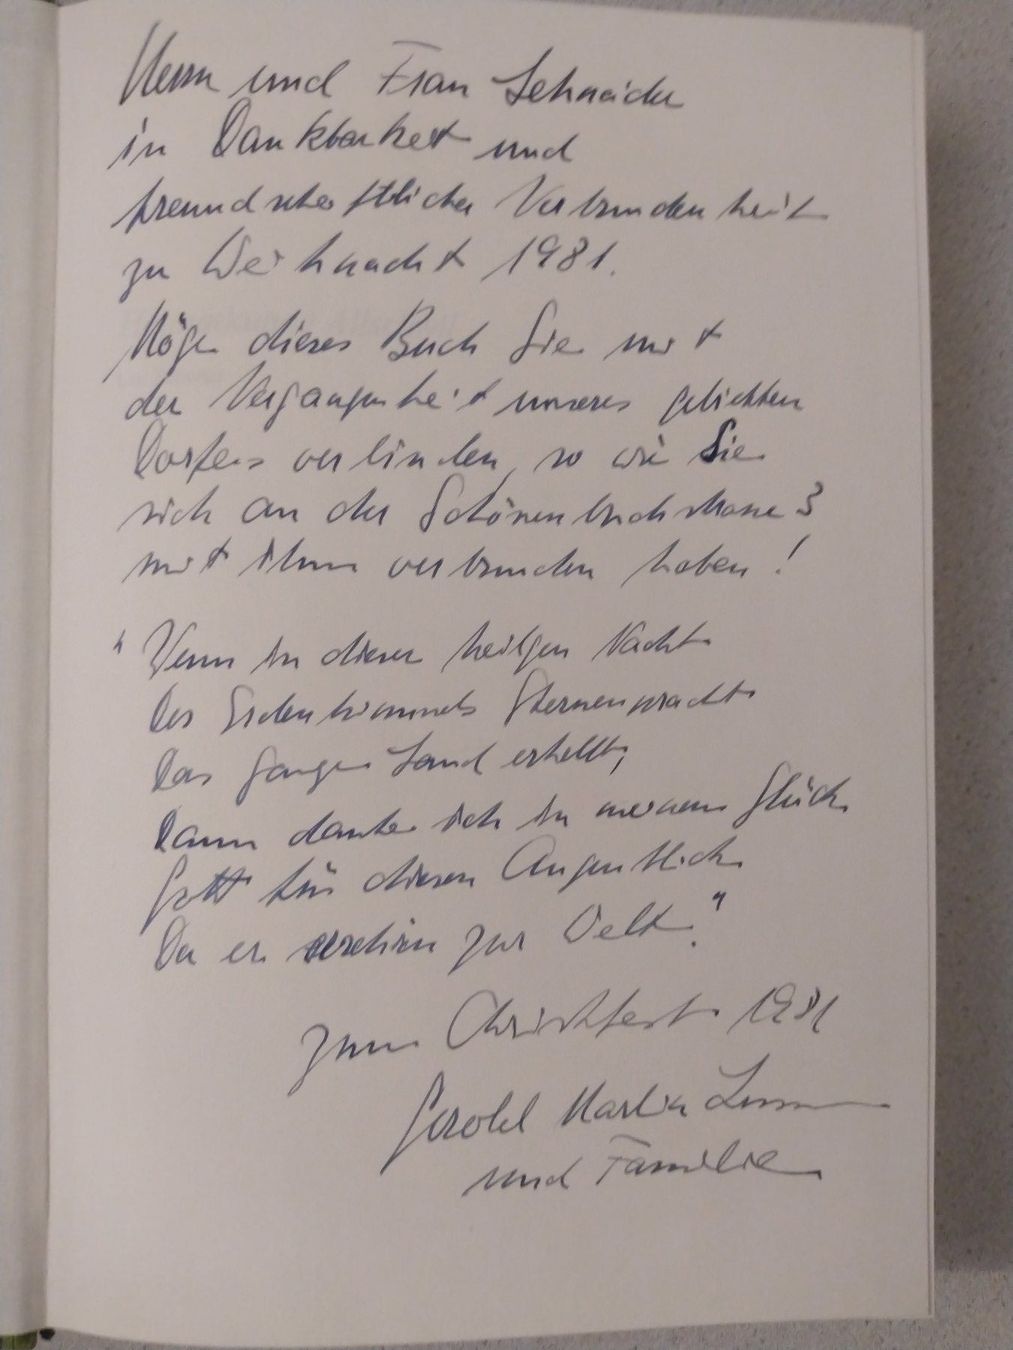 Herrn und Frau Schneider
in Dankbarkeit und
freundschaftlicher Verbundenheit
zu Weihnacht 1981.
Möge dieses Buch Sie mit
der Vergangenheit unseres geliebten
Dorfes verbinden, so wie Sie
sich an der Schönenbuchstrasse 3
mit ihm verbunden haben!
"Wenn in dieser heilgen Nacht
Des Erdenhimmels Sternenpracht
Das ganze Land erhellt,
Dann danke ich in meinem Glück
Gott für diesen Augenblick
Da er erschien zur Welt."
Zum Christfest 1981
Gerold Martin
und Familie